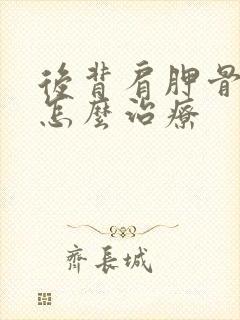 後背肩胛骨
怎麼治療
齊長城